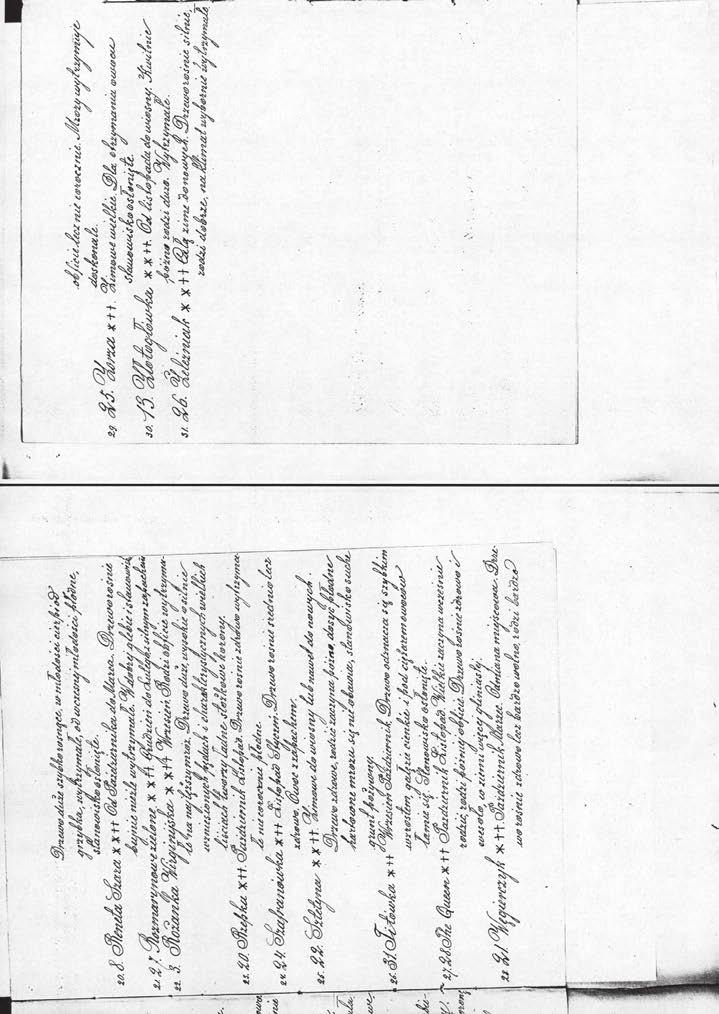 Drzewo duże szybko rosnące, w młodości cierpi od
grzybka, wytrzymałe, od wczesnej młodości płodne,
stanowisko osłonięte.
20. 8. Reneta Szara x x †† Od Października do Marca. Drzewo rośnie
bujnie nieźle wytrzymałe. W dobrej glebie i stanowisk
21. 27. Rozmarynowe zielone x x †† Grudzień do Lutego silnym zapachem
22. 3. Różanka Wirginijska x x †† Wrzesień Rodzi obficie wytrzyma-
łe na najtęższy mróz. Drzewo duże, wysokie o silnie
wzniesionych pędach i charakterystycznych wielkich
liściach tworzy ładne, stożkowe korony.
23. 20. Rzepka x †† Październik Listopad. Drzewo rośnie zdrowo wytrzyma-
łe nie corocznie płodne.
24. 24. Szafranówka x †† Listopad Styczeń. Drzewo rośnie średnio lecz
zdrowo. Owoc z zapachem.
25. 22. Sztetyna x x †† Zimowe do wiosny lub nawet do nowych.
Drzewo zdrowe, rodzić zaczyna późno, dosyć płodne
harłowne mrozu się nie obawia, stanowisko suche
grunt pożywny.
26. 31. Titówka x †† Wrzesień Październik Drzewo odznacza się szybkim
wzrostem gałęzie cienkie i pod ciężarem owoców
łamią się. Stanowisko osłonięte.
27. 28 The Queen x †† Październik Listopad. Wielkie zaczyna wcześnie
rodzić, rodzi później obficie. Drzewo rośnie zdrowo i
wesoło, co ziemi więcej gliniastej.
28 21. Węgierczyk x †† Październik Marzec. Odmiana miejscowa. Drze-
wo rośnie zdrowo lecz bardzo wolno, rodzi bardzo
obficie lecz nie corocznie. Mrozy wytrzymuje
doskonale.
29. 25. Zorza x ††. Zimowe wielkie. Dla otrzymania owocu
stanowisko osłonięte.
30. 13. Złotogłówka x x ††. Od listopada do wiosny. Kwitnie
późno rodzi dużo. Wytrzymałe.
31. 26. Żeleźniak x x †† Całą zimę do nowych. Drzewo rośnie silnie,
rodzi dobrze, na klimat wybornie wytrzymałe